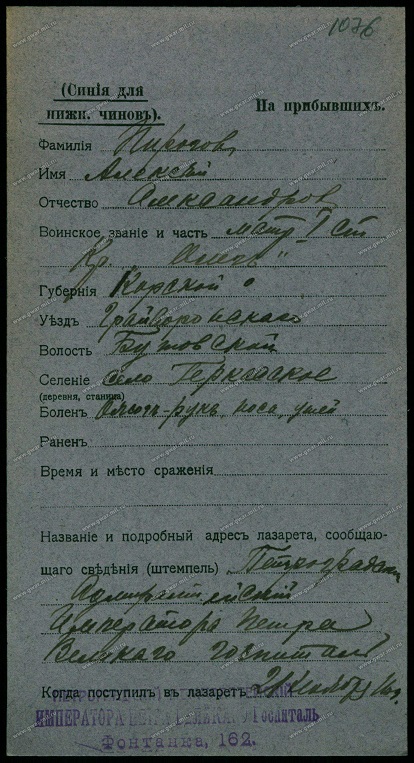 1076
(Синія для
нижн. чиновъ).
На прибывшихъ.
Фамилія Пирогов
Имя Алексѣй
Отчество Александров
Воинское званіе и часть матр I ст
Кр.
Губернія Курской
Уѣздъ Грайворонскаго
Волость Бутовской
Селеніе село Черкасское
(деревня, станица)
Боленъ рукъ, носа, ушей
Раненъ
Время и мѣсто сраженія
Названіе и подробный адресъ лазарета, сообщаю-
щаго свѣдѣнія (штемпель) Петроградск
Адмиралтейский
Императора Петра
Великаго Госпиталь
Когда поступилъ въ лазаретъ
ИМПЕРАТОРА ПЕТРА ВЕЛИКАГО Госпиталь
Фонтанка, 162.